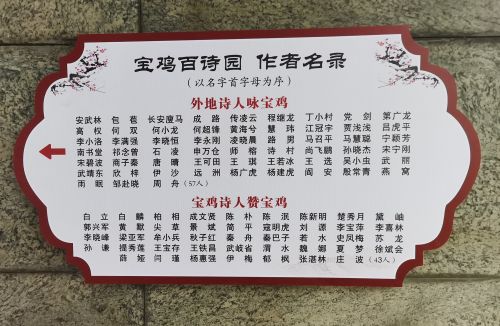 宝鸡百诗园 作者名录
(以名字首字母为序)
外地诗人咏宝鸡
安武林 包苞 长安瘦马 成路 传凌云 程继龙 丁小村 党剑 第广龙
高权 何双 何小龙 何超锋 黄海兮 慧玮 江冠宇 贾浅浅 吕虎平
李小洛 李满强 李晓恒 李永刚 凌晓晨 路男 马召平 马慧聪 宁颖芳
南书堂 祁念曾 石凌 申万仓 师榕 诗村 尚飞鹏 孙晓杰 宋宁刚
宋碧波 商子秦 唐晴 王可田 王琪 王若冰 王选 吴小虫 武丽
武靖东 欣梓 伊沙 远洲 杨广虎 杨建虎 阎安 殷常青 燕窝
雨眠 邹赴晓 周舟 (57人)
宝鸡诗人赞宝鸡
白立 白麟 柏相 成文贤 陈朴 陈泯 陈新明 楚秀月 黛岫
郭兴军 黄默 尖草 景斌 简平 寇明虎 刘源 李宝萍 李喜林
李晓峰 梁亚军 牟小兵 秋子红 秦舟 秦巴子 若水 史凤梅 苏龙
孙谦 提秀莲 王宝存 王铁昌 武岐省 渭水 魏娜 夏梦 徐斌会
薛娅 闫瑾 杨惠强 伊梅 郁枫 张湛林 庄波 (43人)